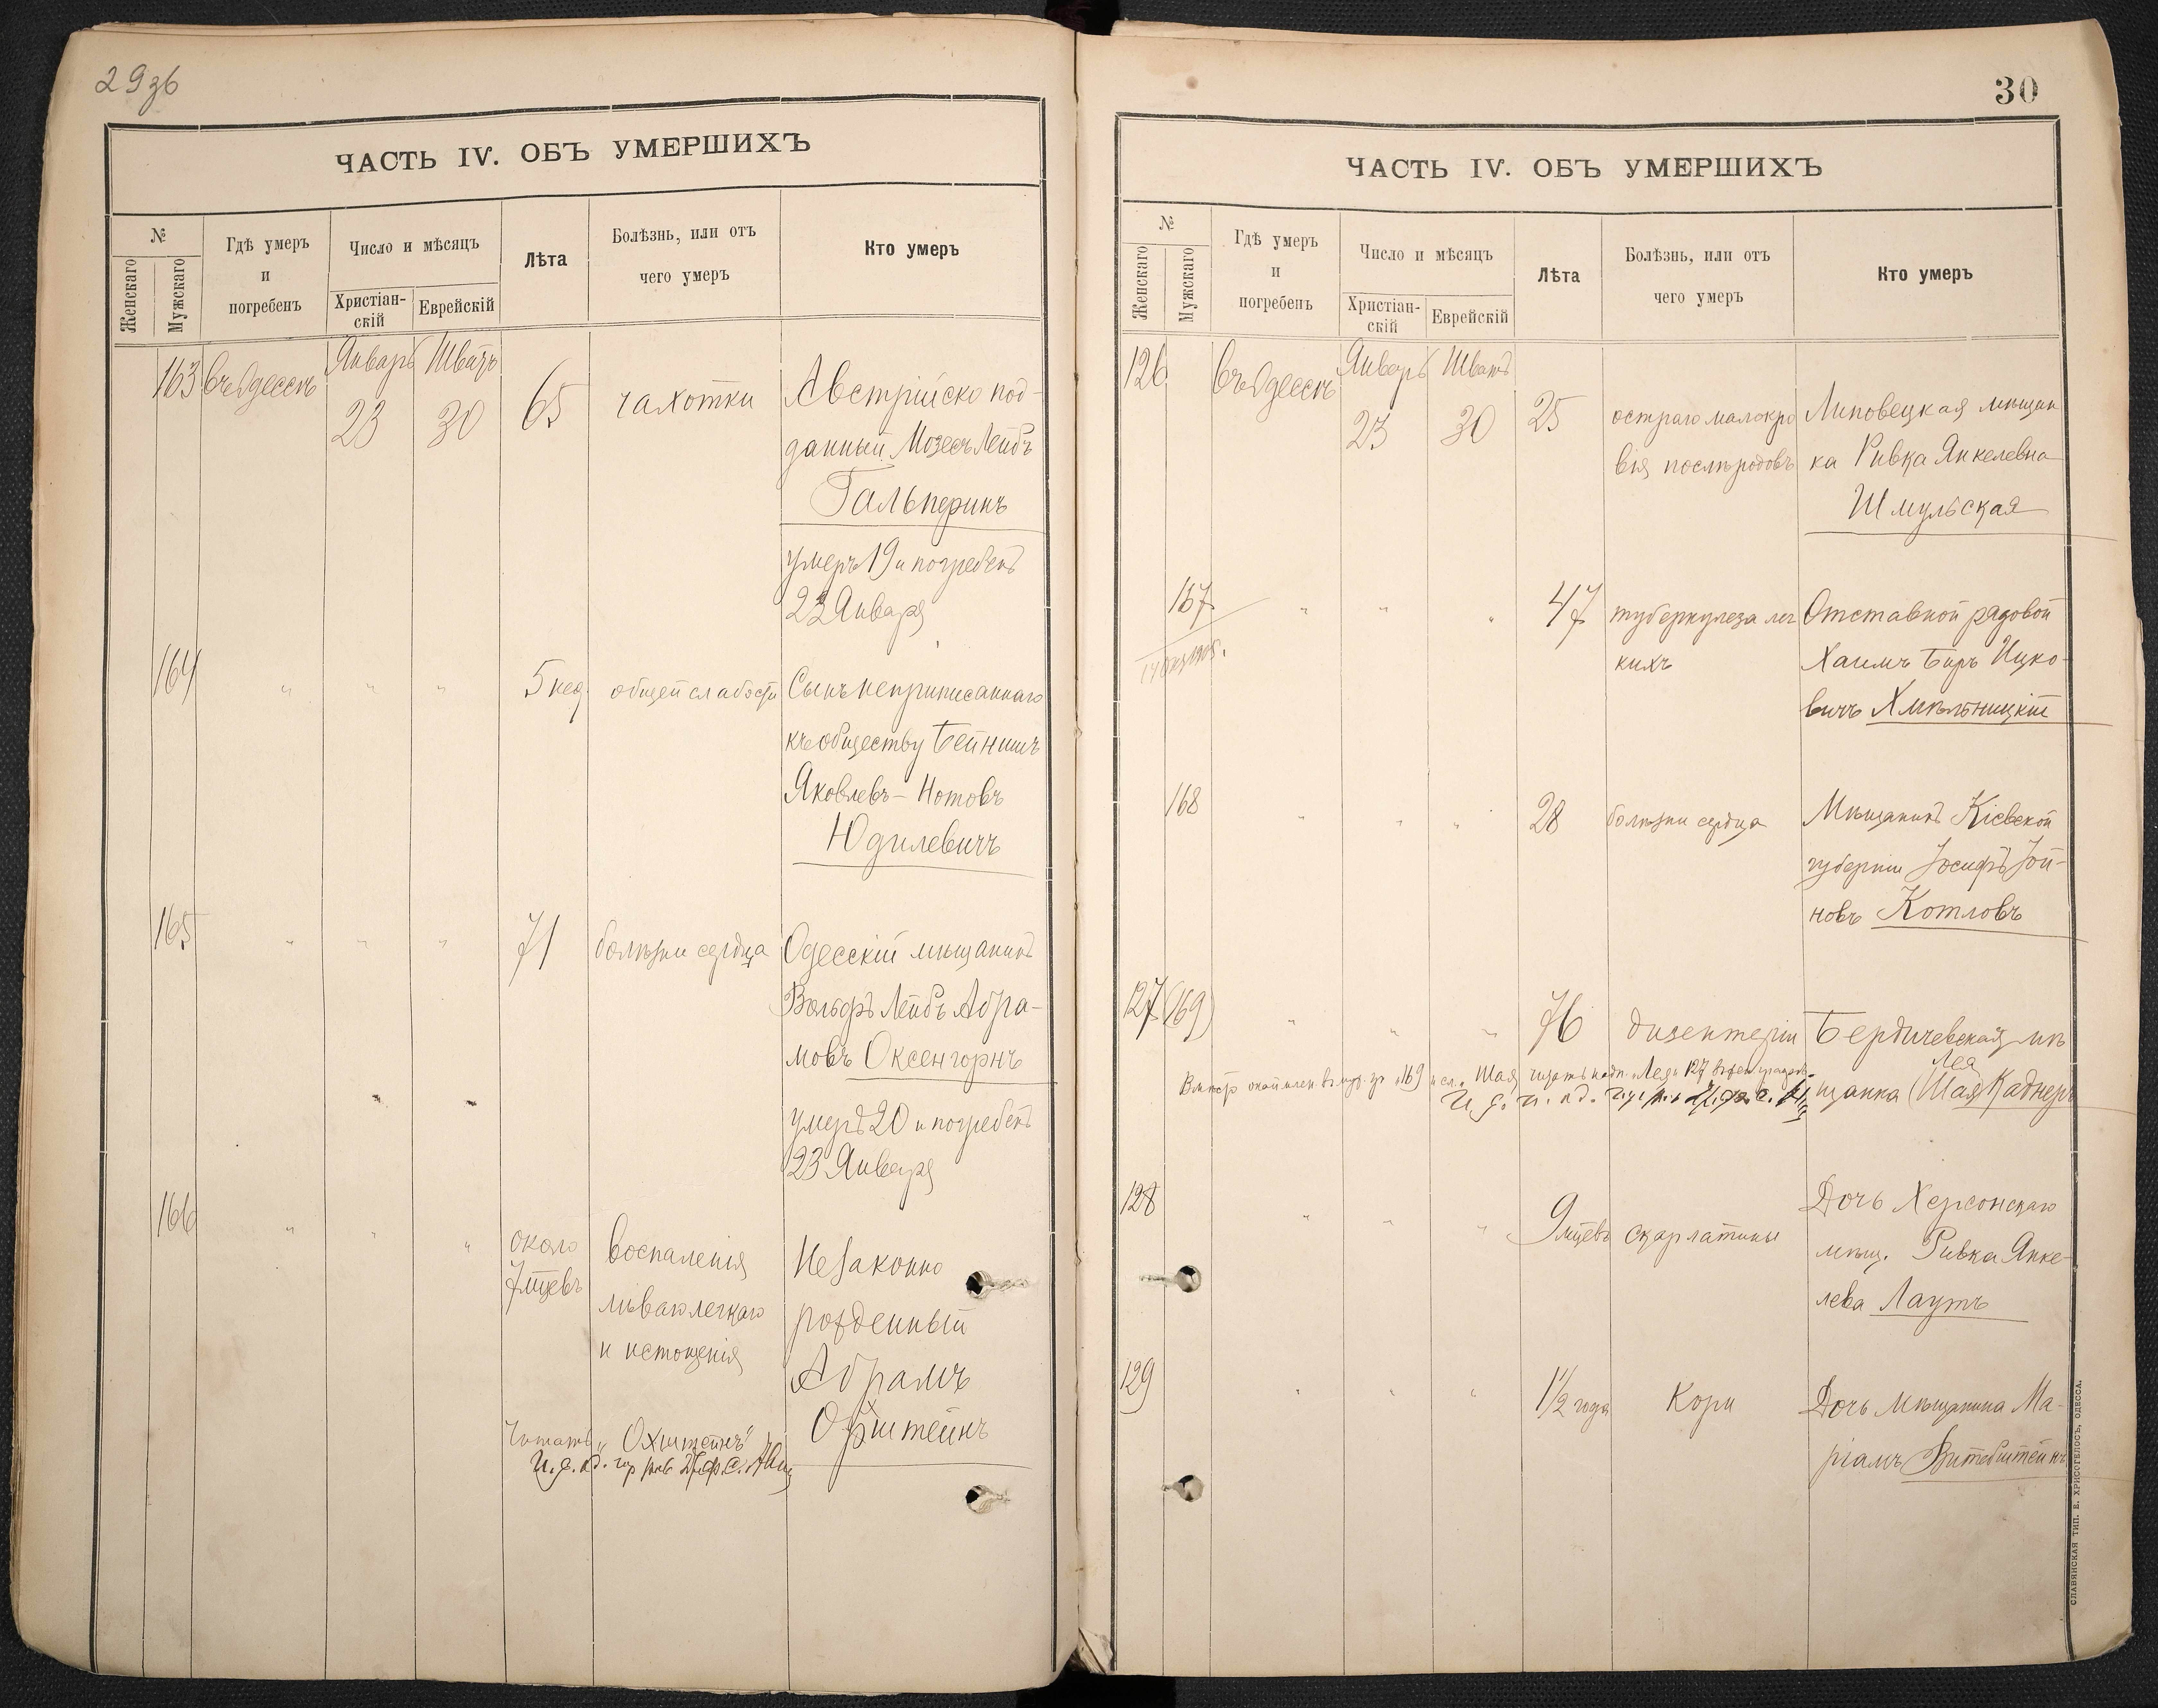 29зб
ЧАСТЬ IV. ОБЪ УМЕРШИХЪ
№
Женскаго
Мужскаго
Гдѣ умеръ
и
погребенъ
Число и мѣсяцъ
Христіан-
скій
Еврейскій
Лѣта
Болѣзнь, или отъ
чего умеръ
Кто умеръ
163 въ Одессѣ Январь Шватъ
23 30 65 чахотки Австрійско под-
данный Мозесъ Лейбъ
Гальперинъ
умеръ 19 и погребенъ
23 Января
164 " " " 5 нед. общей слабости Сынъ неприписаннаго
къ обществу Бейнишъ
Яковлевъ - Нотовъ
Юдилевичъ
165 " " " 71 болѣзни сердца Одесскій мѣщанинъ
Вольфъ Лейбъ Абра-
мовъ Оксенгорнъ
умеръ 20 и погребенъ
23 Января
166 " " " около
7 мцевъ
воспаленія
лѣваго легкаго
и истощенія
Незаконно
рожденный
Абрамъ
Охштейнъ
Читать „Охштейнъ"
И. д.
30
ЧАСТЬ IV. ОБЪ УМЕРШИХЪ
№
Женскаго
Мужскаго
Гдѣ умеръ
и
погребенъ
Число и мѣсяцъ
Христіан-
скій
Еврейскій
Лѣта
Болѣзнь, или отъ
чего умеръ
Кто умеръ
126 въ Одессѣ Январь Шватъ
23 30 25 остраго малокро
вія послѣ родовъ
Липовецкая мѣщан
ка Ривка Янкелевна
Шмульская
167 " " " 47 туберкулеза лег
кихъ
Отставной рядовой
Хаимъ Беръ Ицко-
вичъ Хмѣльницкій
168 " " " 28 болѣзни сердца Мѣщанинъ Кіевской
губерніи Іосифъ Іой-
новъ Котловъ
127 (169) " " " 76 дизентеріи Бердичевская мѣ
Лея
щанка (Шая) Каднеръ
128 " " " 9 мцевъ скарлатины Дочь Херсонскаго
мѣщ. Ривка Янке-
лева Лаутъ
129 " " " 1½ года Кори Дочь мѣщанина Ма-
ріамъ Витебштейнъ
СЛАВЯНСКАЯ ТИП. Е. ХРИСОГЕЛОСЪ, ОДЕССА.